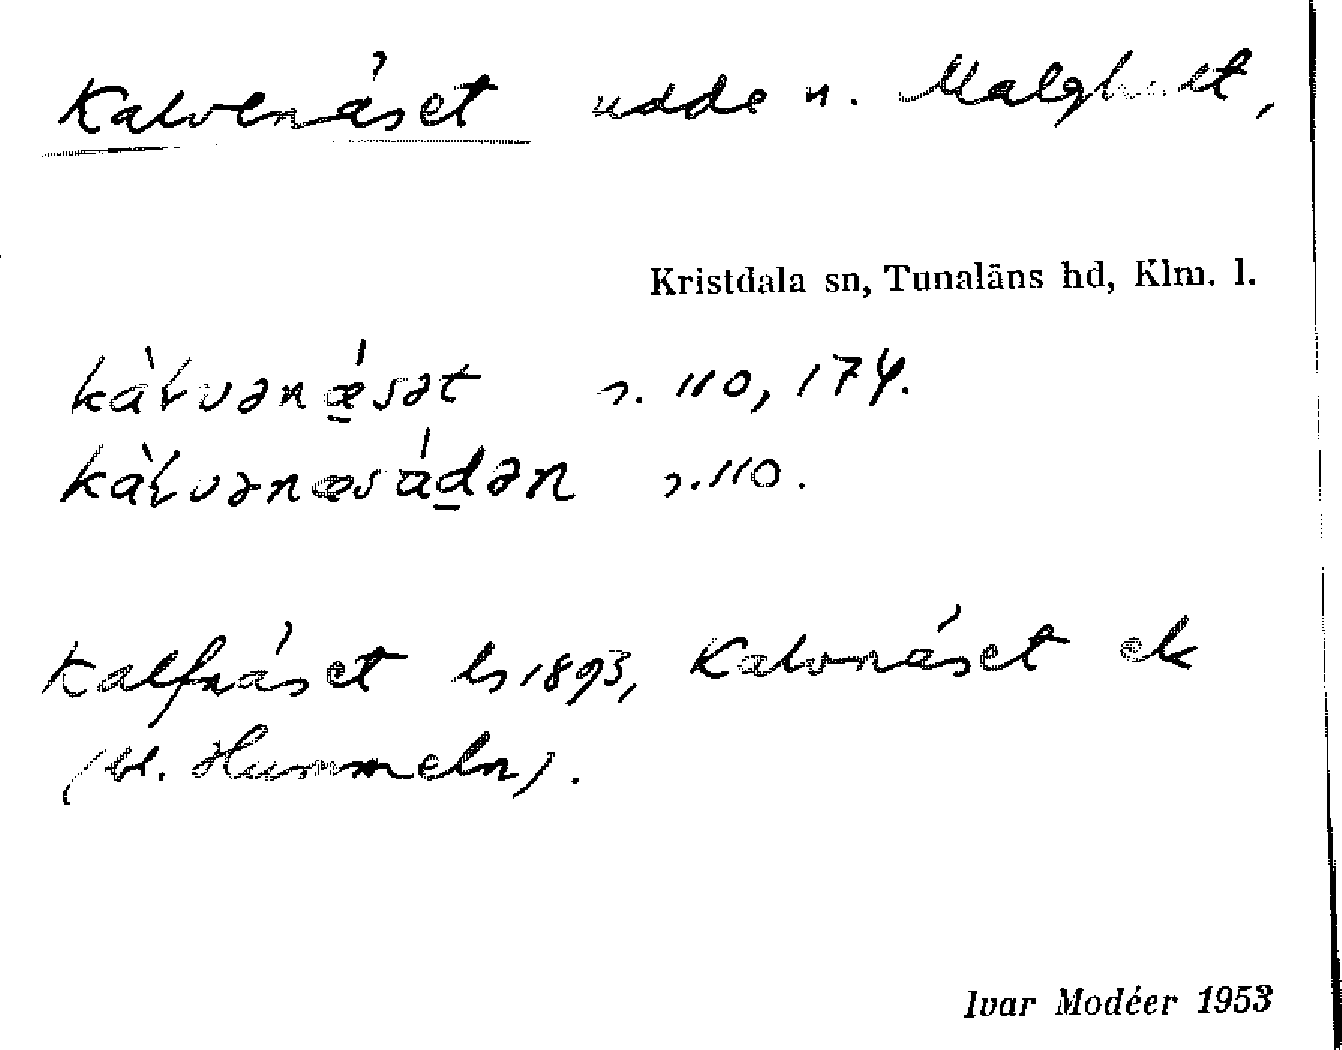 Kalvenäset udde n. Malghult,
Kristdala sn, Tunaläns hd, Klm. l.
kàɫvənǽsət s. 110, 174.
kàɫvənæsádən s. 110.
Kalfnäset ls 1893, Kalvnäset ek
(bl. Hummeln).
Ivar Modéer 1953